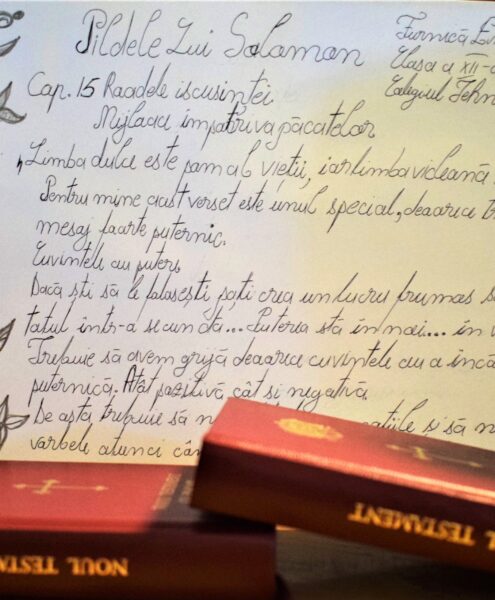 Pildele lui Solomon
Furnică
Clasa a XII-a
Colegiul Tehn
Cap. 15 Roadele iscusinței
Mijloace împotriva păcatelor
„Limba dulce este pom al vieții, iar limba vicleană
Pentru mine acest verset este unul special, deoarece
mesaj foarte puternic.
Cuvintele au putere
Dacă ști să le folosești poți crea un lucru frumos
totul într-o secundă... Puterea stă în noi... în
Trebuie să avem grijă deoarece cuvintele au o încă
puternică. Atât pozitivă cât și negativă.
De asta trebuie să ne și să n
vorbele atunci cân
NOUL TESTA
L TESTAMENT